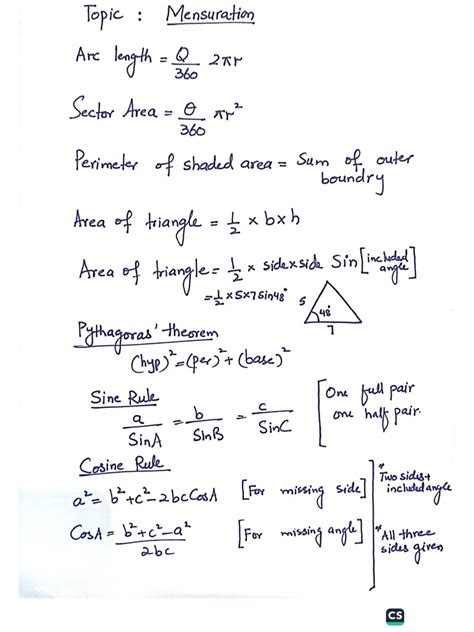 Topic : Mensuration
Arc length = Q/360 2πr
Sector Area = θ/360 πr²
Perimeter of shaded area = Sum of outer
boundry
Area of triangle = 1/2 × b×h
Area of triangle = 1/2 × side×side Sin [included angle]
= 1/2 × 5×7 Sin48°
5
48°
7
Pythagoras' theorem
(hyp)² = (per)² + (base)²
Sine Rule
a/SinA = b/SinB = c/SinC
[One full pair
one half pair.
Cosine Rule
a² = b²+c²-2bcCosA [For missing side]
*Two sides+
included angle
CosA = b²+c²-a²/2bc [For missing angle]
*All three
sides given
CS